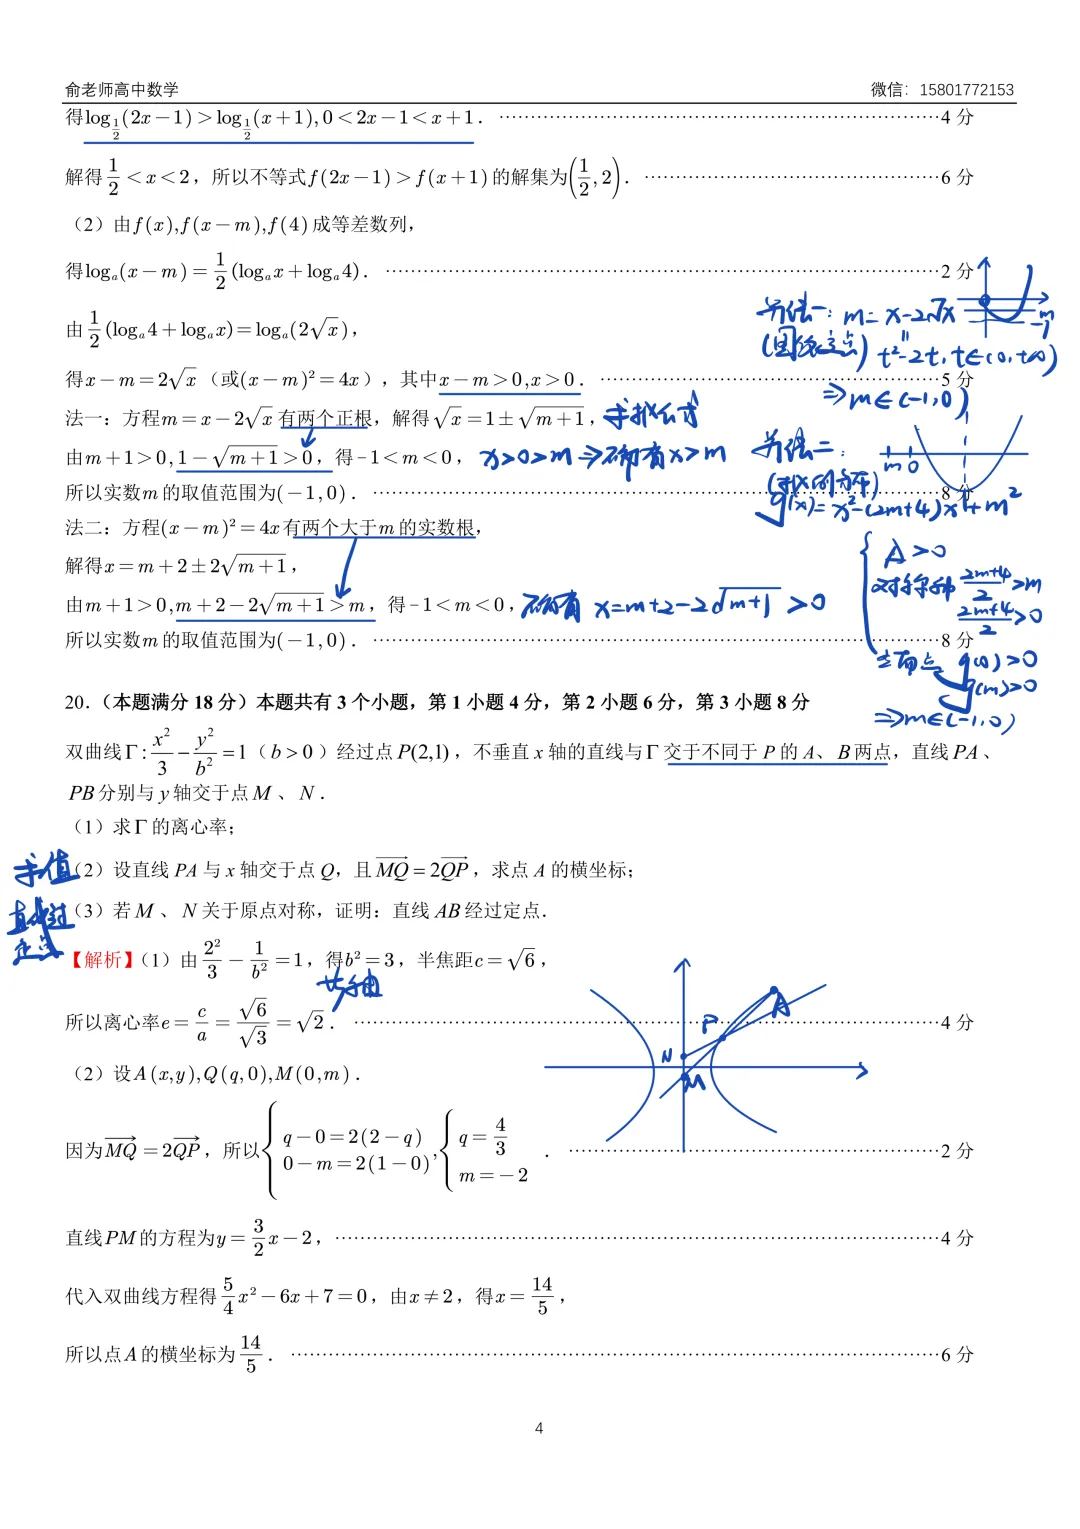 俞老师高中数学 微信：15801772153
得log_{1/2}(2x－1)＞log_{1/2}(x＋1),0＜2x－1＜x＋1．……4 分
解得 1/2＜x＜2，所以不等式f(2x－1)＞f(x＋1)的解集为(1/2,2)．……6 分
（2）由f(x),f(x－m),f(4)成等差数列，
得log_a(x－m)＝1/2(log_a x＋log_a 4)．……2 分
另法一：m＝x－2√x
(图象交点) t²－2t，t∈(0,＋∞)
m
－1
由 1/2(log_a 4＋log_a x)＝log_a(2√x)，
得x－m＝2√x（或(x－m)²＝4x），其中x－m＞0,x＞0．……5 分
⇒m∈(－1,0)
法一：方程m＝x－2√x有两个正根，解得√x＝1±√(m＋1)，求根公式
由m＋1＞0,1－√(m＋1)＞0，得－1＜m＜0，x＞0＞m⇒确有x＞m
另法二：
m 0
(根的分布)
所以实数m的取值范围为(－1,0)．……8 分
g(x)＝x²－(2m＋4)x＋m²
法二：方程(x－m)²＝4x有两个大于m的实数根，
解得x＝m＋2±2√(m＋1)，
△＞0
对称轴 (2m＋4)/2＞m
(2m＋4)/2＞0
由m＋1＞0,m＋2－2√(m＋1)＞m，得－1＜m＜0，确有 x＝m＋2－2√(m＋1)＞0
所以实数m的取值范围为(－1,0)．……8 分
g(0)＞0
g(m)＞0
⇒m∈(－1,0)
20．（本题满分 18 分）本题共有 3 个小题，第 1 小题 4 分，第 2 小题 6 分，第 3 小题 8 分
双曲线Γ: x²/3－y²/b²＝1（b＞0）经过点P(2,1)，不垂直 x 轴的直线与Γ交于不同于 P 的 A、B 两点，直线PA、
PB分别与y轴交于点M、N．
（1）求Γ的离心率；
求值
（2）设直线 PA 与 x 轴交于点 Q，且MQ→＝2QP→，求点 A 的横坐标；
直线过
定点
（3）若M、N关于原点对称，证明：直线 AB经过定点．
【解析】（1）由 2²/3－1/b²＝1，得b²＝3，半焦距c＝√6，
所以离心率e＝c/a＝√6/√3＝√2．……4 分
P
A
N
M
（2）设A(x,y),Q(q,0),M(0,m)．
因为MQ→＝2QP→，所以{q－0＝2(2－q) 0－m＝2(1－0),{q＝4/3 m＝－2．……2 分
直线PM的方程为y＝3/2x－2，……4 分
代入双曲线方程得 5/4x²－6x＋7＝0，由x≠2，得x＝14/5，
所以点A的横坐标为 14/5．……6 分
4